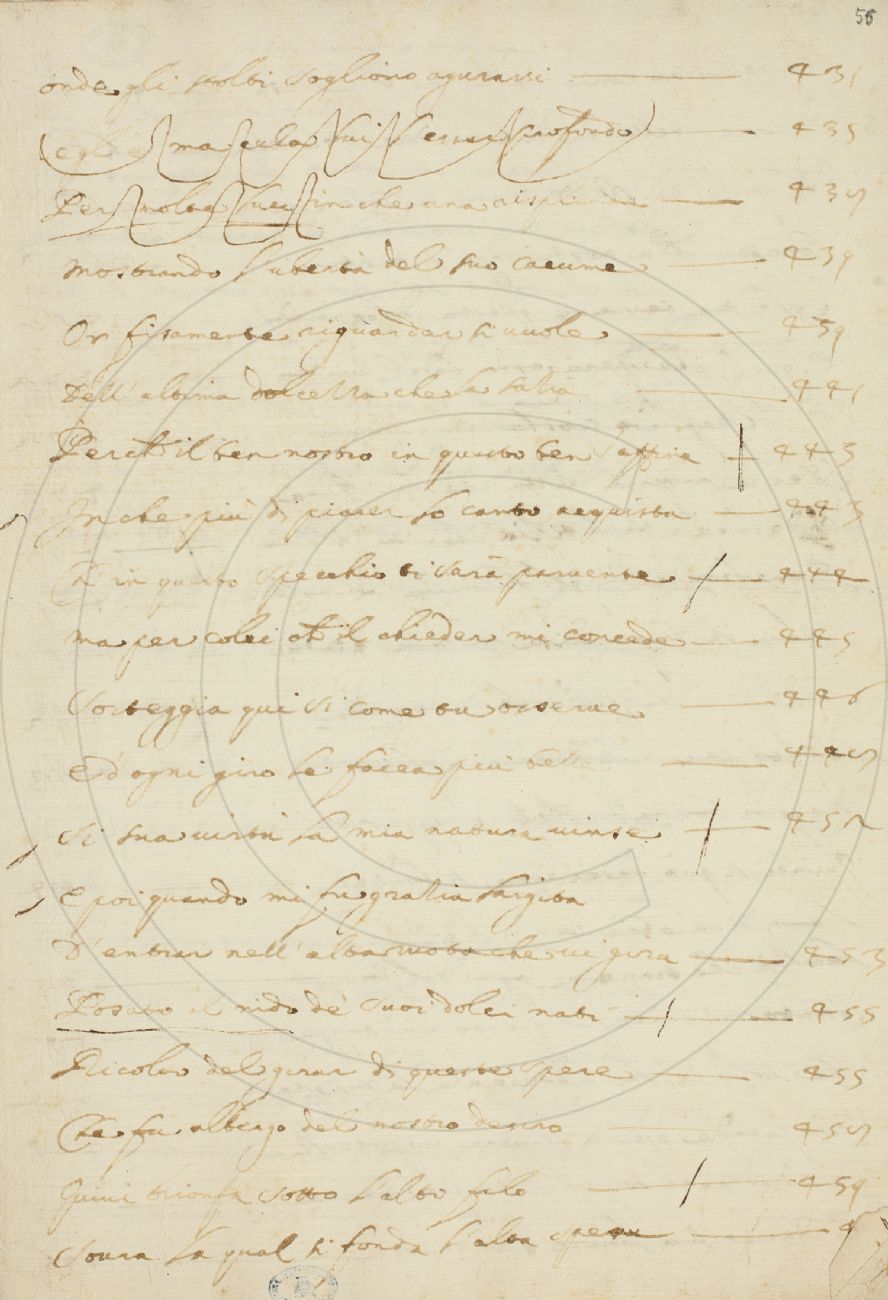 56
onde gli stolti sogliono agurarsi 431
(egli è ma cela lui l'esser profondo) 435
Per molte luci in che una risplende 437
mostrando l'ubertà del suo cacume 439
Or fisamente riguardar si vuole 439
Dell'altima dolcezza che la satia 441
Perch'il ben nostro in questo ben s'affina 443
In che più di piacer lo canto acquista 443
Ch'in questo specchio ti sarà parvente 444
ma per colei ch'il chieder mi concede 445
Sorteggia qui si come tu osserve 446
E d'ogni giro la facea più bella 447
Si sua virtù la mia natura vinse 452
E poi quando mi fu gratia largita
D'entrar nell'alta ruota che vi gira 453
Posato al nido de' suoi dolci nati 455
Picolo del girar di queste spere 455
Che fu albergo del nostro desiro 457
Quivi trionfa sotto l'alto filo 459
Sovra la qual si fonda l'alta spene 4